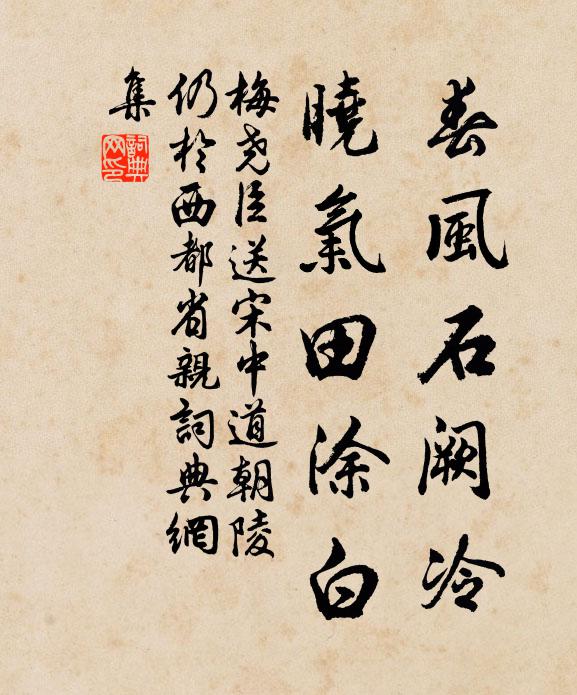 春風石阙冷
曉氣田涂白
梅尧臣送宋中道朝陵
仍於西都省親詞典網
集
詞典
网印